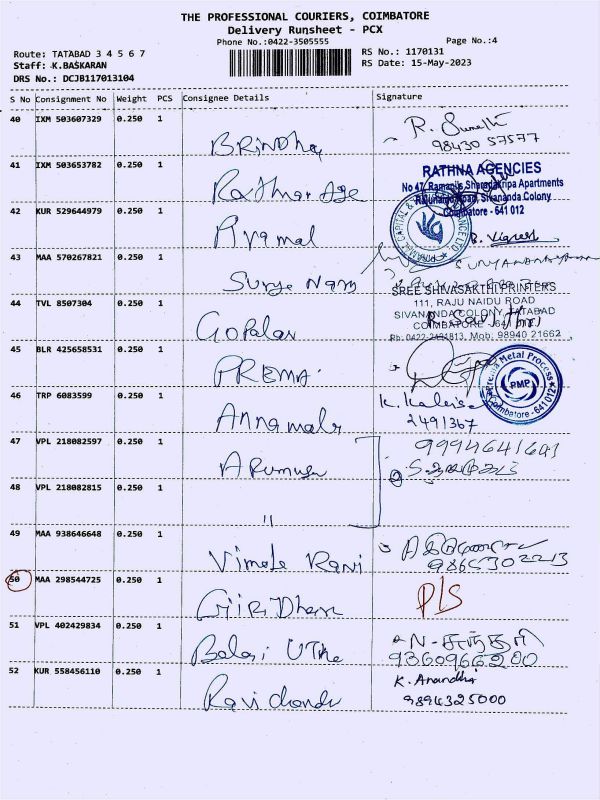 THE PROFESSIONAL COURIERS, COIMBATORE
Delivery Runsheet - PCX
Phone No.:0422-3505555 Page No.:4
Route: TATABAD 3 4 5 6 7 RS No.: 1170131
Staff: K.BASKARAN RS Date: 15-May-2023
DRS No.: DCJB117013104
S No Consignment No Weight PCS Consignee Details Signature
40 IXM 503607329 0.250 1
BRINDha R. Sumathi
98430 57577
41 IXM 503653782 0.250 1
RATHNA AGENCIES
No 47, Ramanis Sharadakripa Apartments
Rajunaidu Road, Sivananda Colony
Coimbatore - 641 012
42 KUR 529644979 0.250 1
B. Vignesh
43 MAA 570267821 0.250 1
Surya Nara
SREE SHIVASAKTHI PRINTERS
111, RAJU NAIDU ROAD
44 TVL 8507304 0.250 1
SIVANANDA COLONY, TATABAD
COIMBATORE - 641 012
Gopalan R. Savithri
Ph: 0422-2491813, Mob: 98940 21662
45 BLR 425658531 0.250 1
PREMA
Prema Metal Process
PMP
Coimbatore - 641 012
46 TRP 6083599 0.250 1
Annamalr 2491367
47 VPL 218082597 0.250 1
Arumuga 9994641601
48 VPL 218082815 0.250 1
"
49 MAA 938646648 0.250 1
Vimala Rani
50 MAA 298544725 0.250 1
GiriDharan P/S
51 VPL 402429834 0.250 1
Balaji 9360966200
52 KUR 558456110 0.250 1
Ravichandr K. Anandhi
9894325000